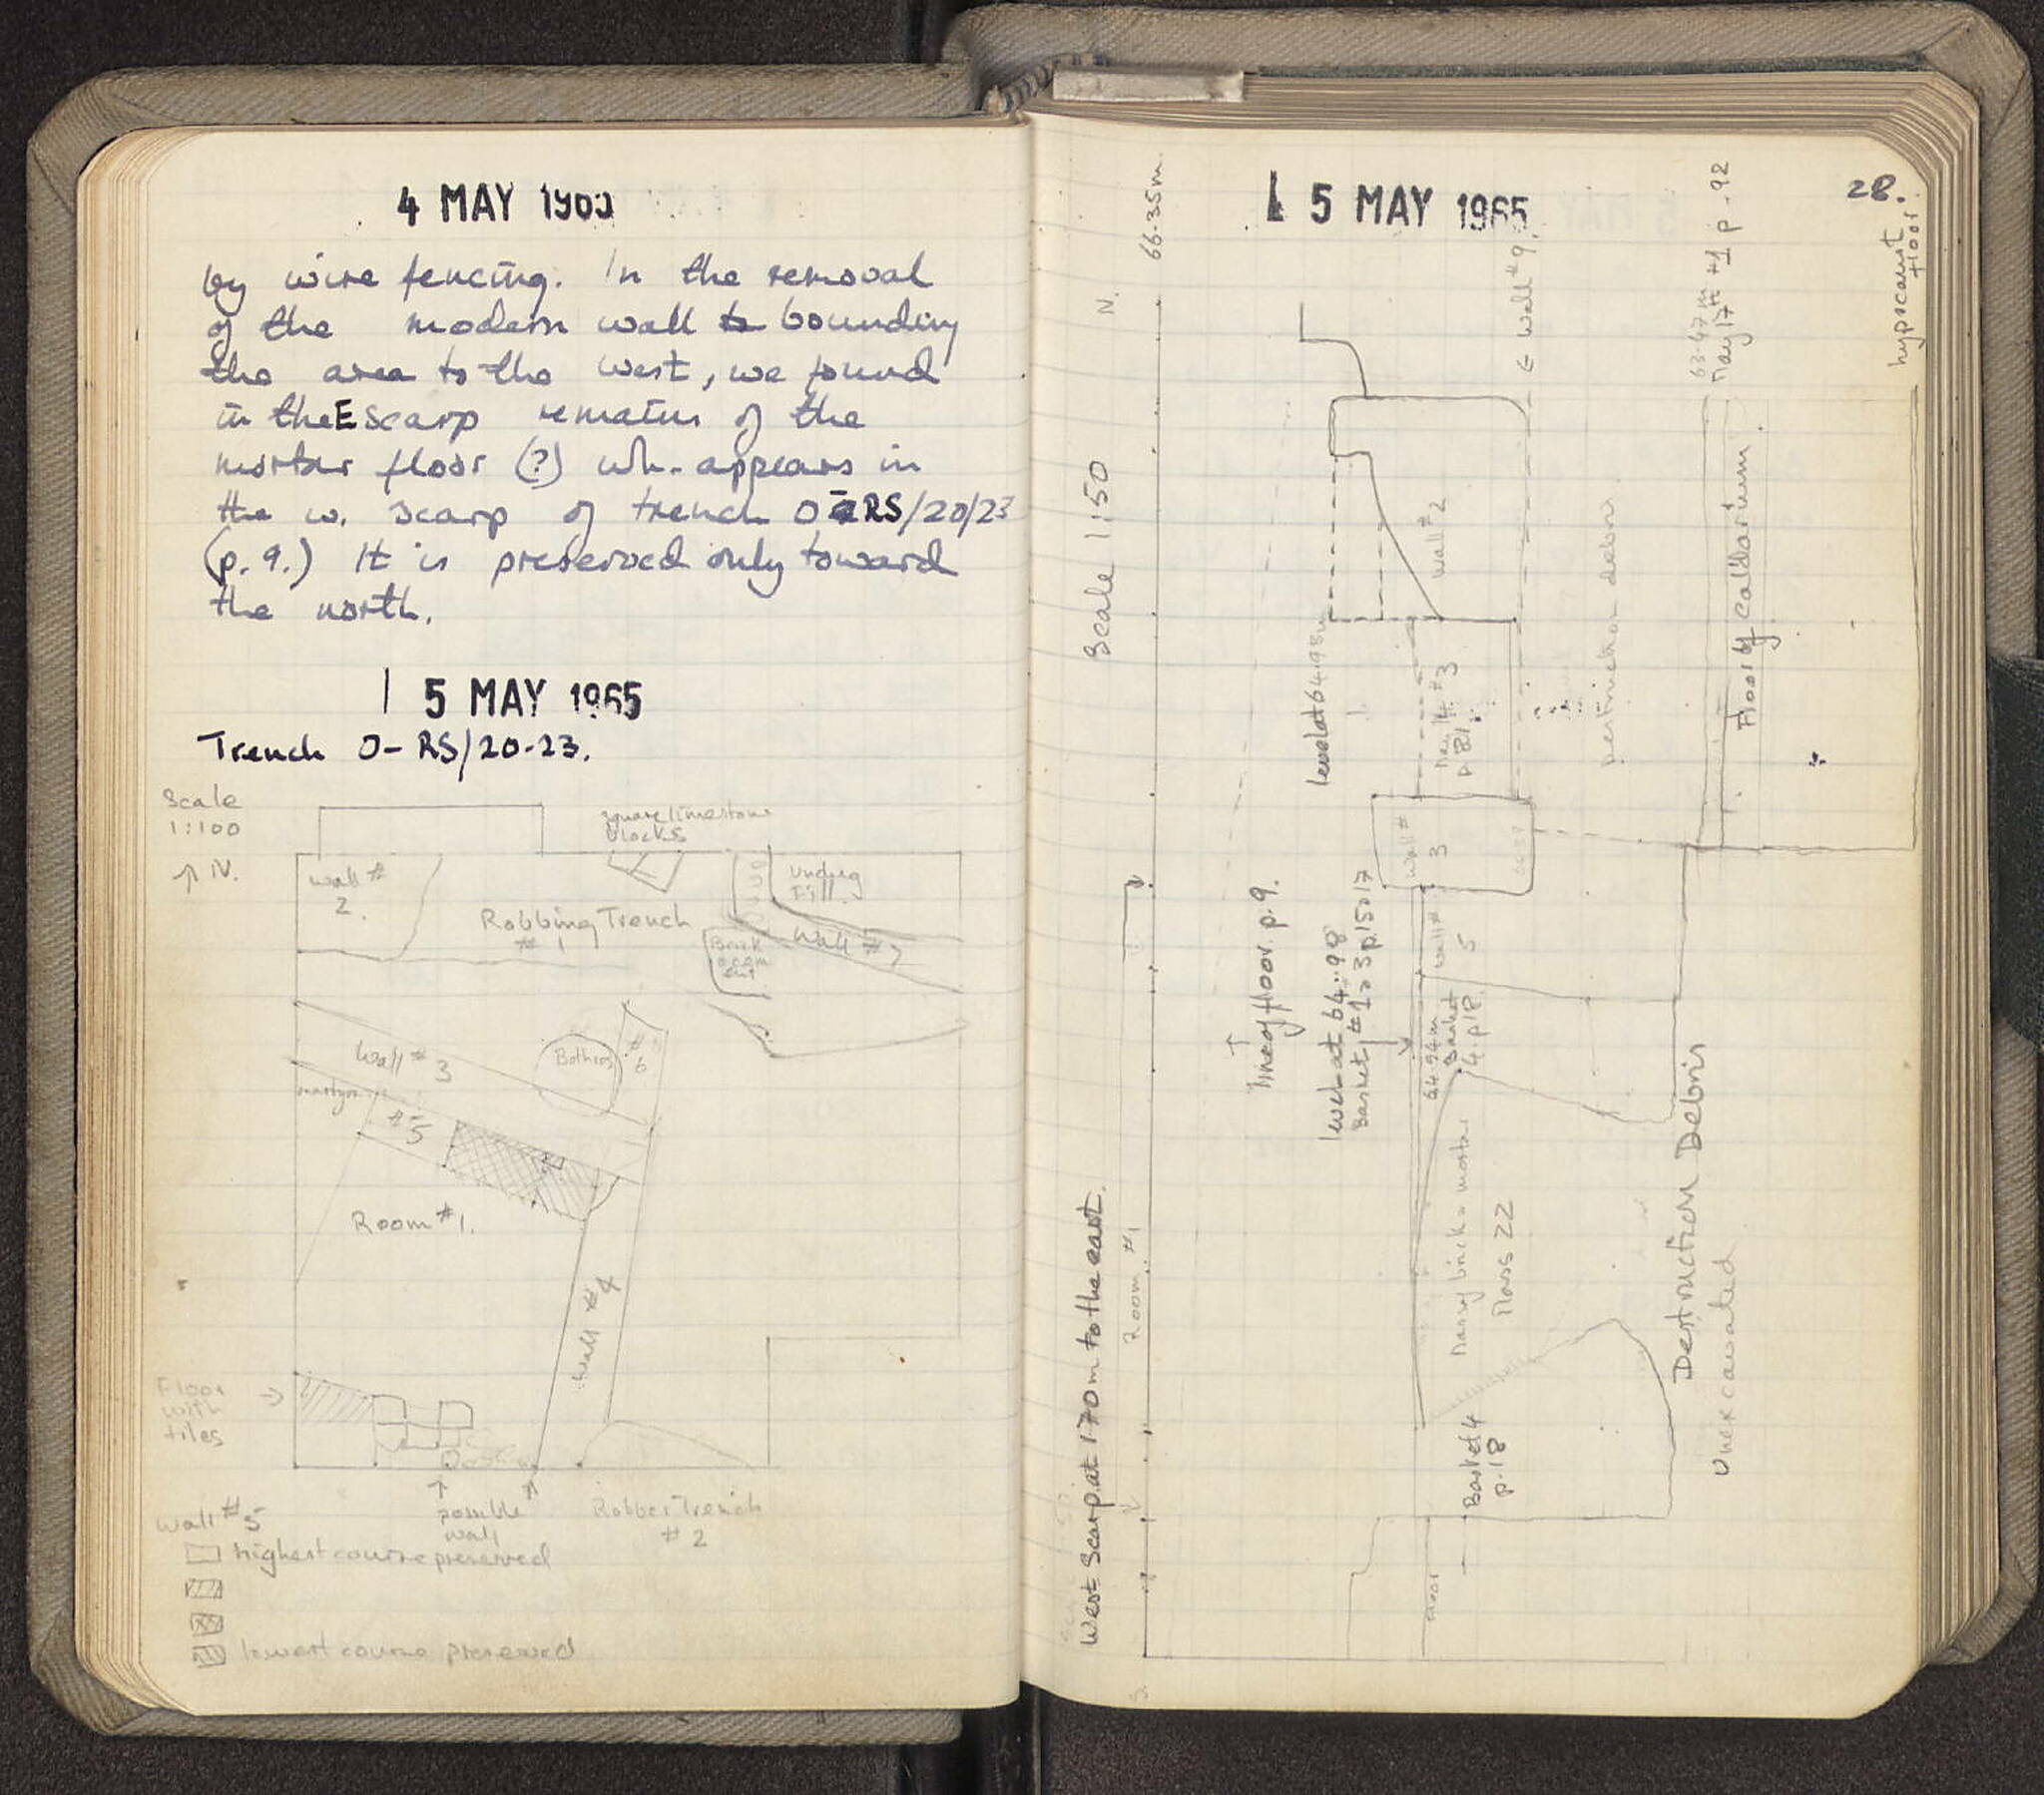 4 MAY 19
by wire fencing. In the removal
of the modern wall to bounding
the area to the west, we found
in the E scarp remains of the
mortar floor (?) wh. appears in
the w. scarp of trench O-RS/20/23
(p. 9.) It is preserved only toward
the north.
15 MAY 1965
Trench O-RS/20-23.
Scale
1:100
↑ N.
square limestone
blocks
wall #
2.
Robbing Trench
# 1
undug
Fill
wall # 7
Brick
wall # 3
Bothros
# 6
# 5
Room #1.
wall #4
Floor
with
tiles
possible
wall
Robber Trench
# 2
wall # 5
highest course preserved
lowest course preserved
15 MAY 1965
28.
West Scarp at 1.70m to the east.
Scale 1:50
N.
66.35m.
S.
Room #1
line of floor p.9.
level at 64.98
Basket #1 3 p.15, 17
level at 64.98m
wall #
3
wall #
5
64.94m
Basket
4. p18
wall #2
May 14 #3
p 81
G wall #9.
destruction debris
63.47m
May 17th #1 p. 92
Floor of caldarium
hypocaust
floor.
Mass of brick & mortar
Basket 4
p.18
Destruction Debris
Unexcavated